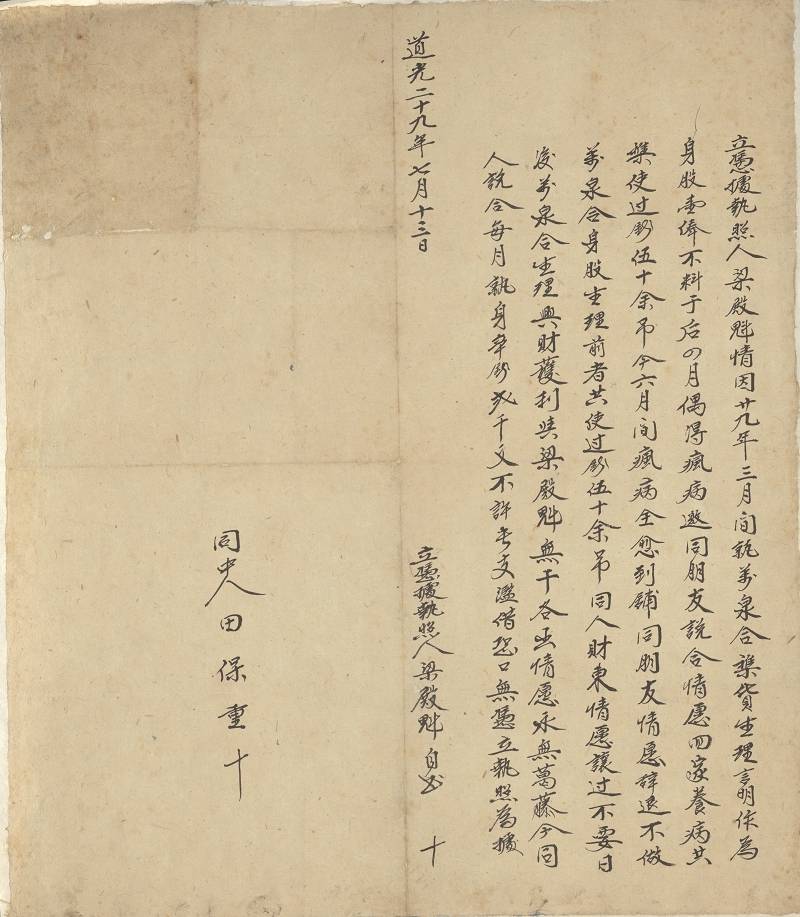 立憑據執照人梁殿魁情因廿九年三月間執萬泉合雜貨生理言明作為
身股壹俸不料于后四月偶得瘋病邀同朋友說合情愿回家養病共
使过釛伍十余吊今六月间瘋病全愈到鋪同朋友情愿辞退不做
萬泉合身股生理前者共使过釛伍十余吊同人財東情愿讓过不要日
后萬泉合生理興財獲利与梁殿魁無干各出情愿永無葛藤今同
人說合每月執身卒釛弍千文不許長支濫借恐口無憑立執照為據
道光二十九年七月十三日
立憑據執照人梁殿魁自書 十
同中人田保重十